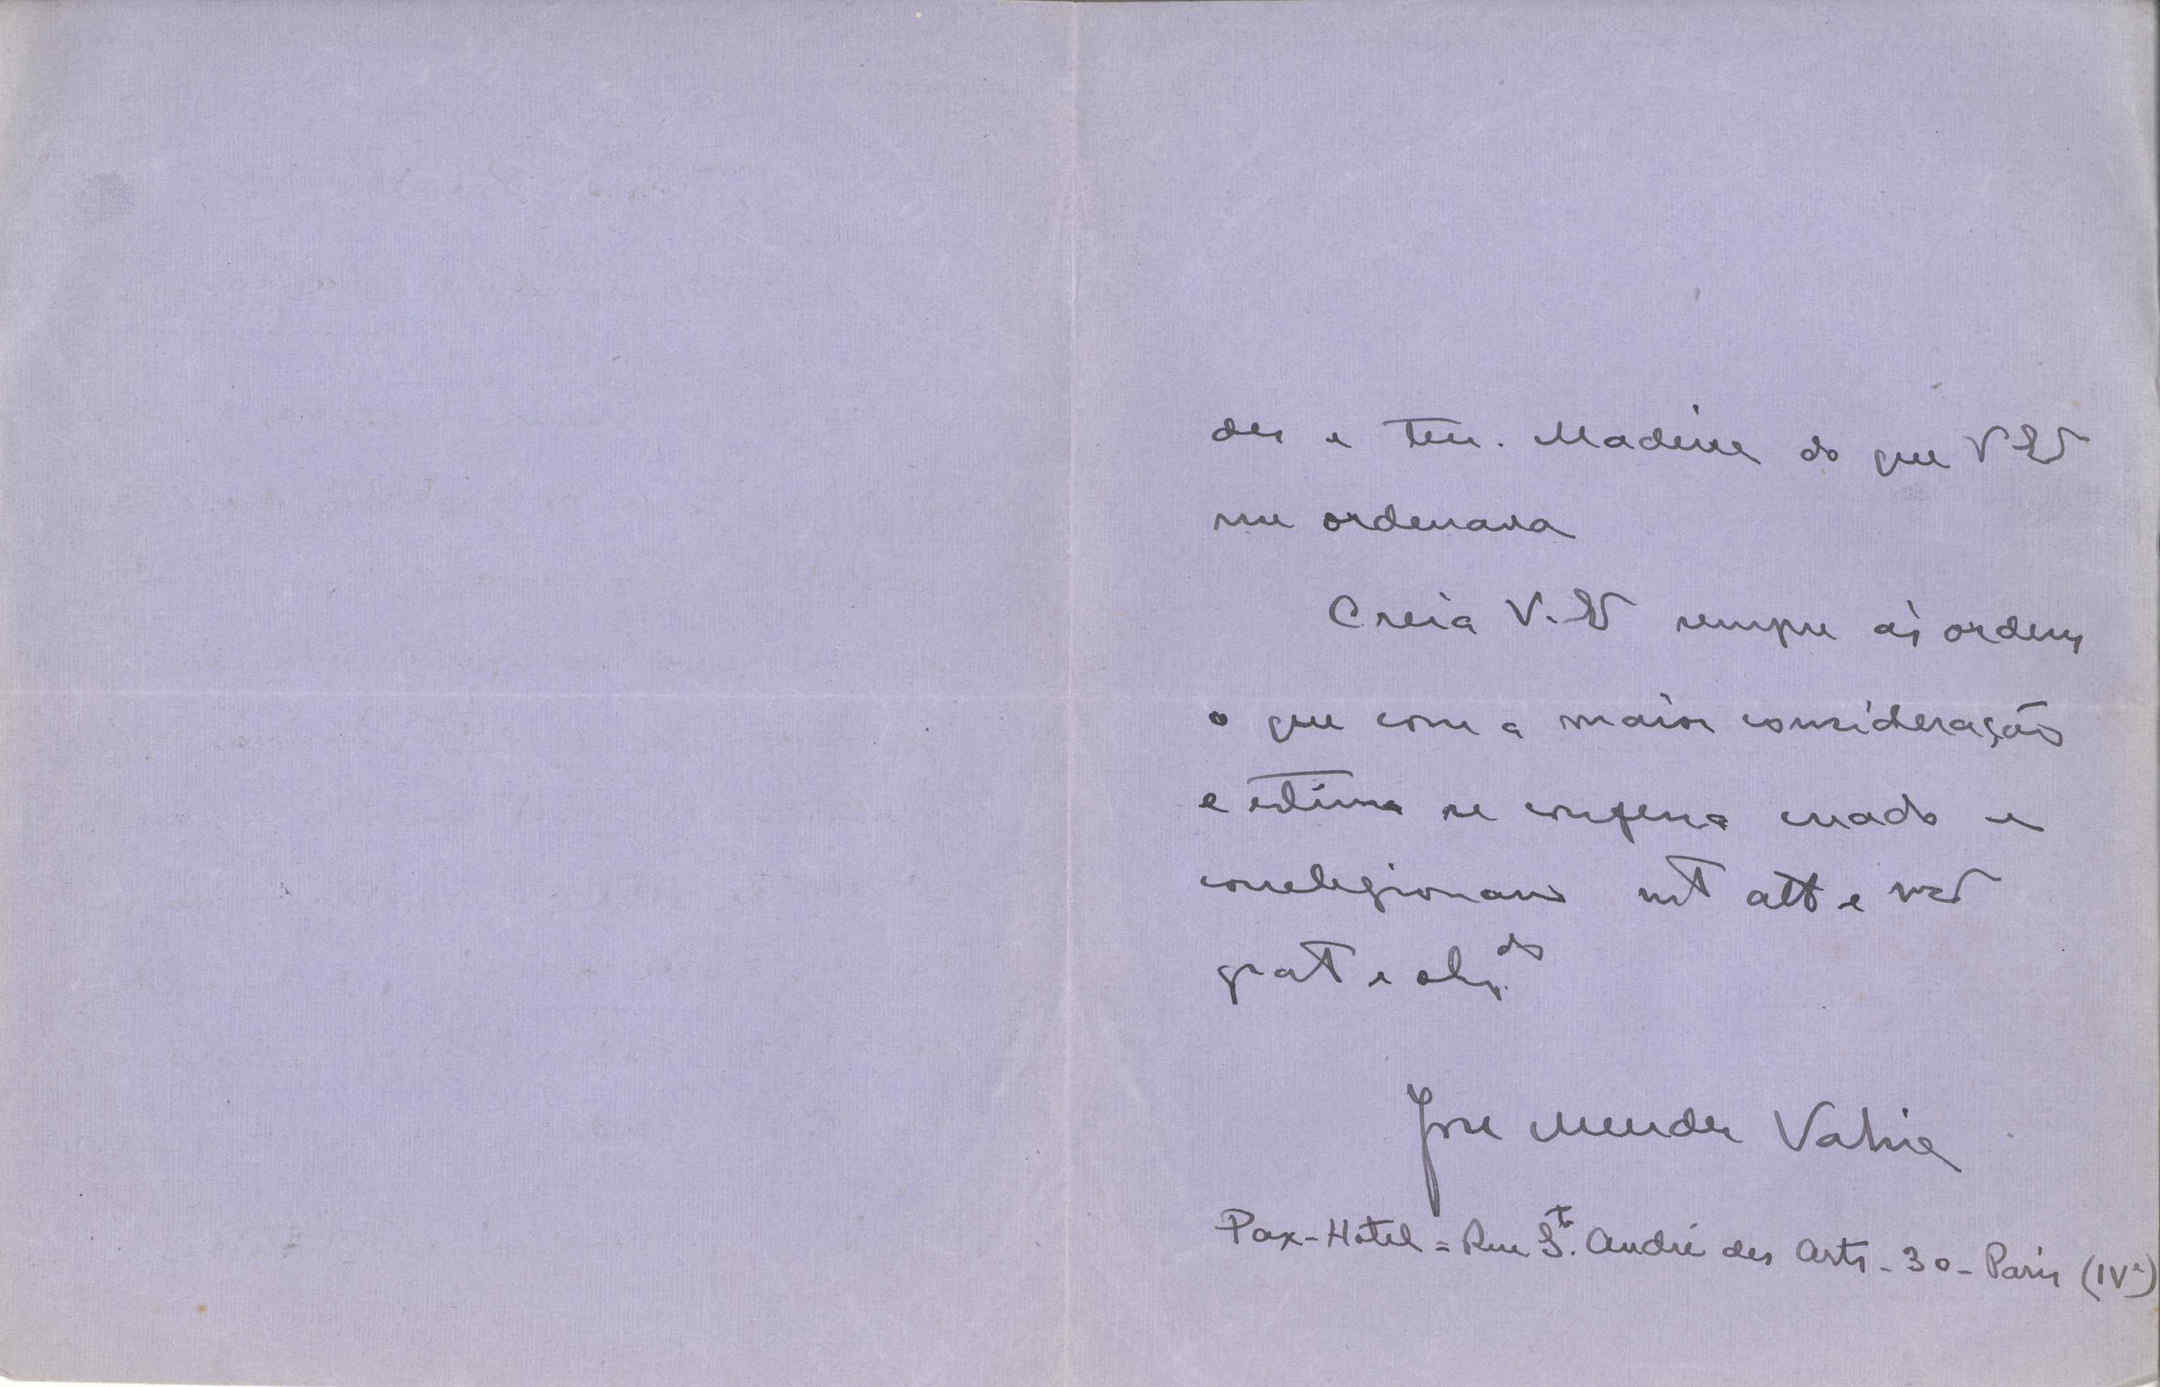 des e Ten. Madeira do que V Ex
me ordenava
Creia V. Ex sempre ás ordens
o que com a maior consideração
e estima se confessa criado e
correligionario mt att e ven
grat e obg. do
Jose Mendes Vahia
Pax-Hotel = Rue St. André des Arts - 30 - Paris (IVe)